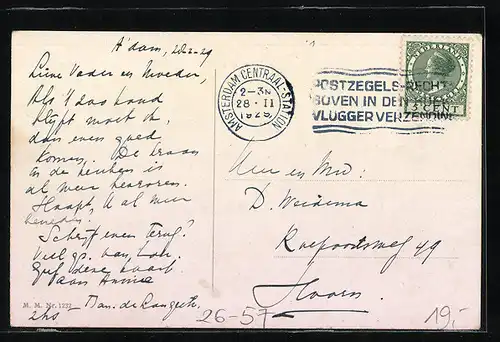 A'dam, 28-2-29
Lieve Vader en Moeder,
Als 't dus hard
blijft moet ik
dan even goed
komen. De kraan
in de keuken is
al weer bevroren.
Hoopt, U al weer
beneden?
Schrijf even Terug?
Veel gr. van Lou.
Geef deze kaart
aan Annie
M. M. Nr. 1232
AMSTERDAM CENTRAAL-STATION
2-3N
28·II
1929
POSTZEGELS RECHTS
BOVEN IN DEN HOEK
VLUGGER VERZENDING
NEDERLAND
3 CENT
Den Heer en Mw:
D. Weidema
Koepoortsweg 49
Hoorn.
26-57
19,-